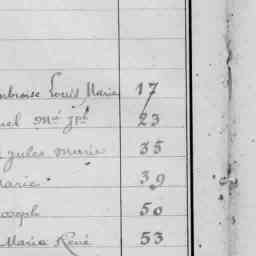 mbroise Louis Marie 17
uel Mie jph 23
Jules Marie 35
Marie 39
Joseph 50
Maria René 53